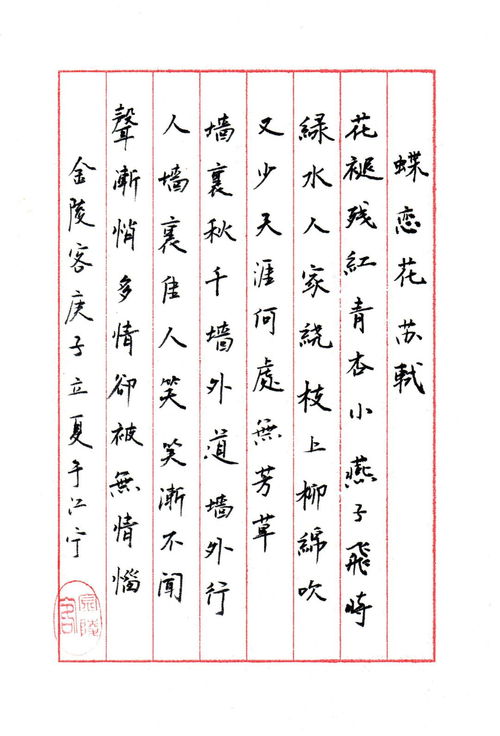 蝶恋花苏軾
花褪残紅青杏小燕子飛時
緑水人家繞枝上柳綿吹
又少天涯何處無芳草
墙裏秋千墙外道墙外行
人墙裏佳人笑笑漸不聞
聲漸悄多情卻被無情惱
金陵客庚子立夏于江宁
金陵客